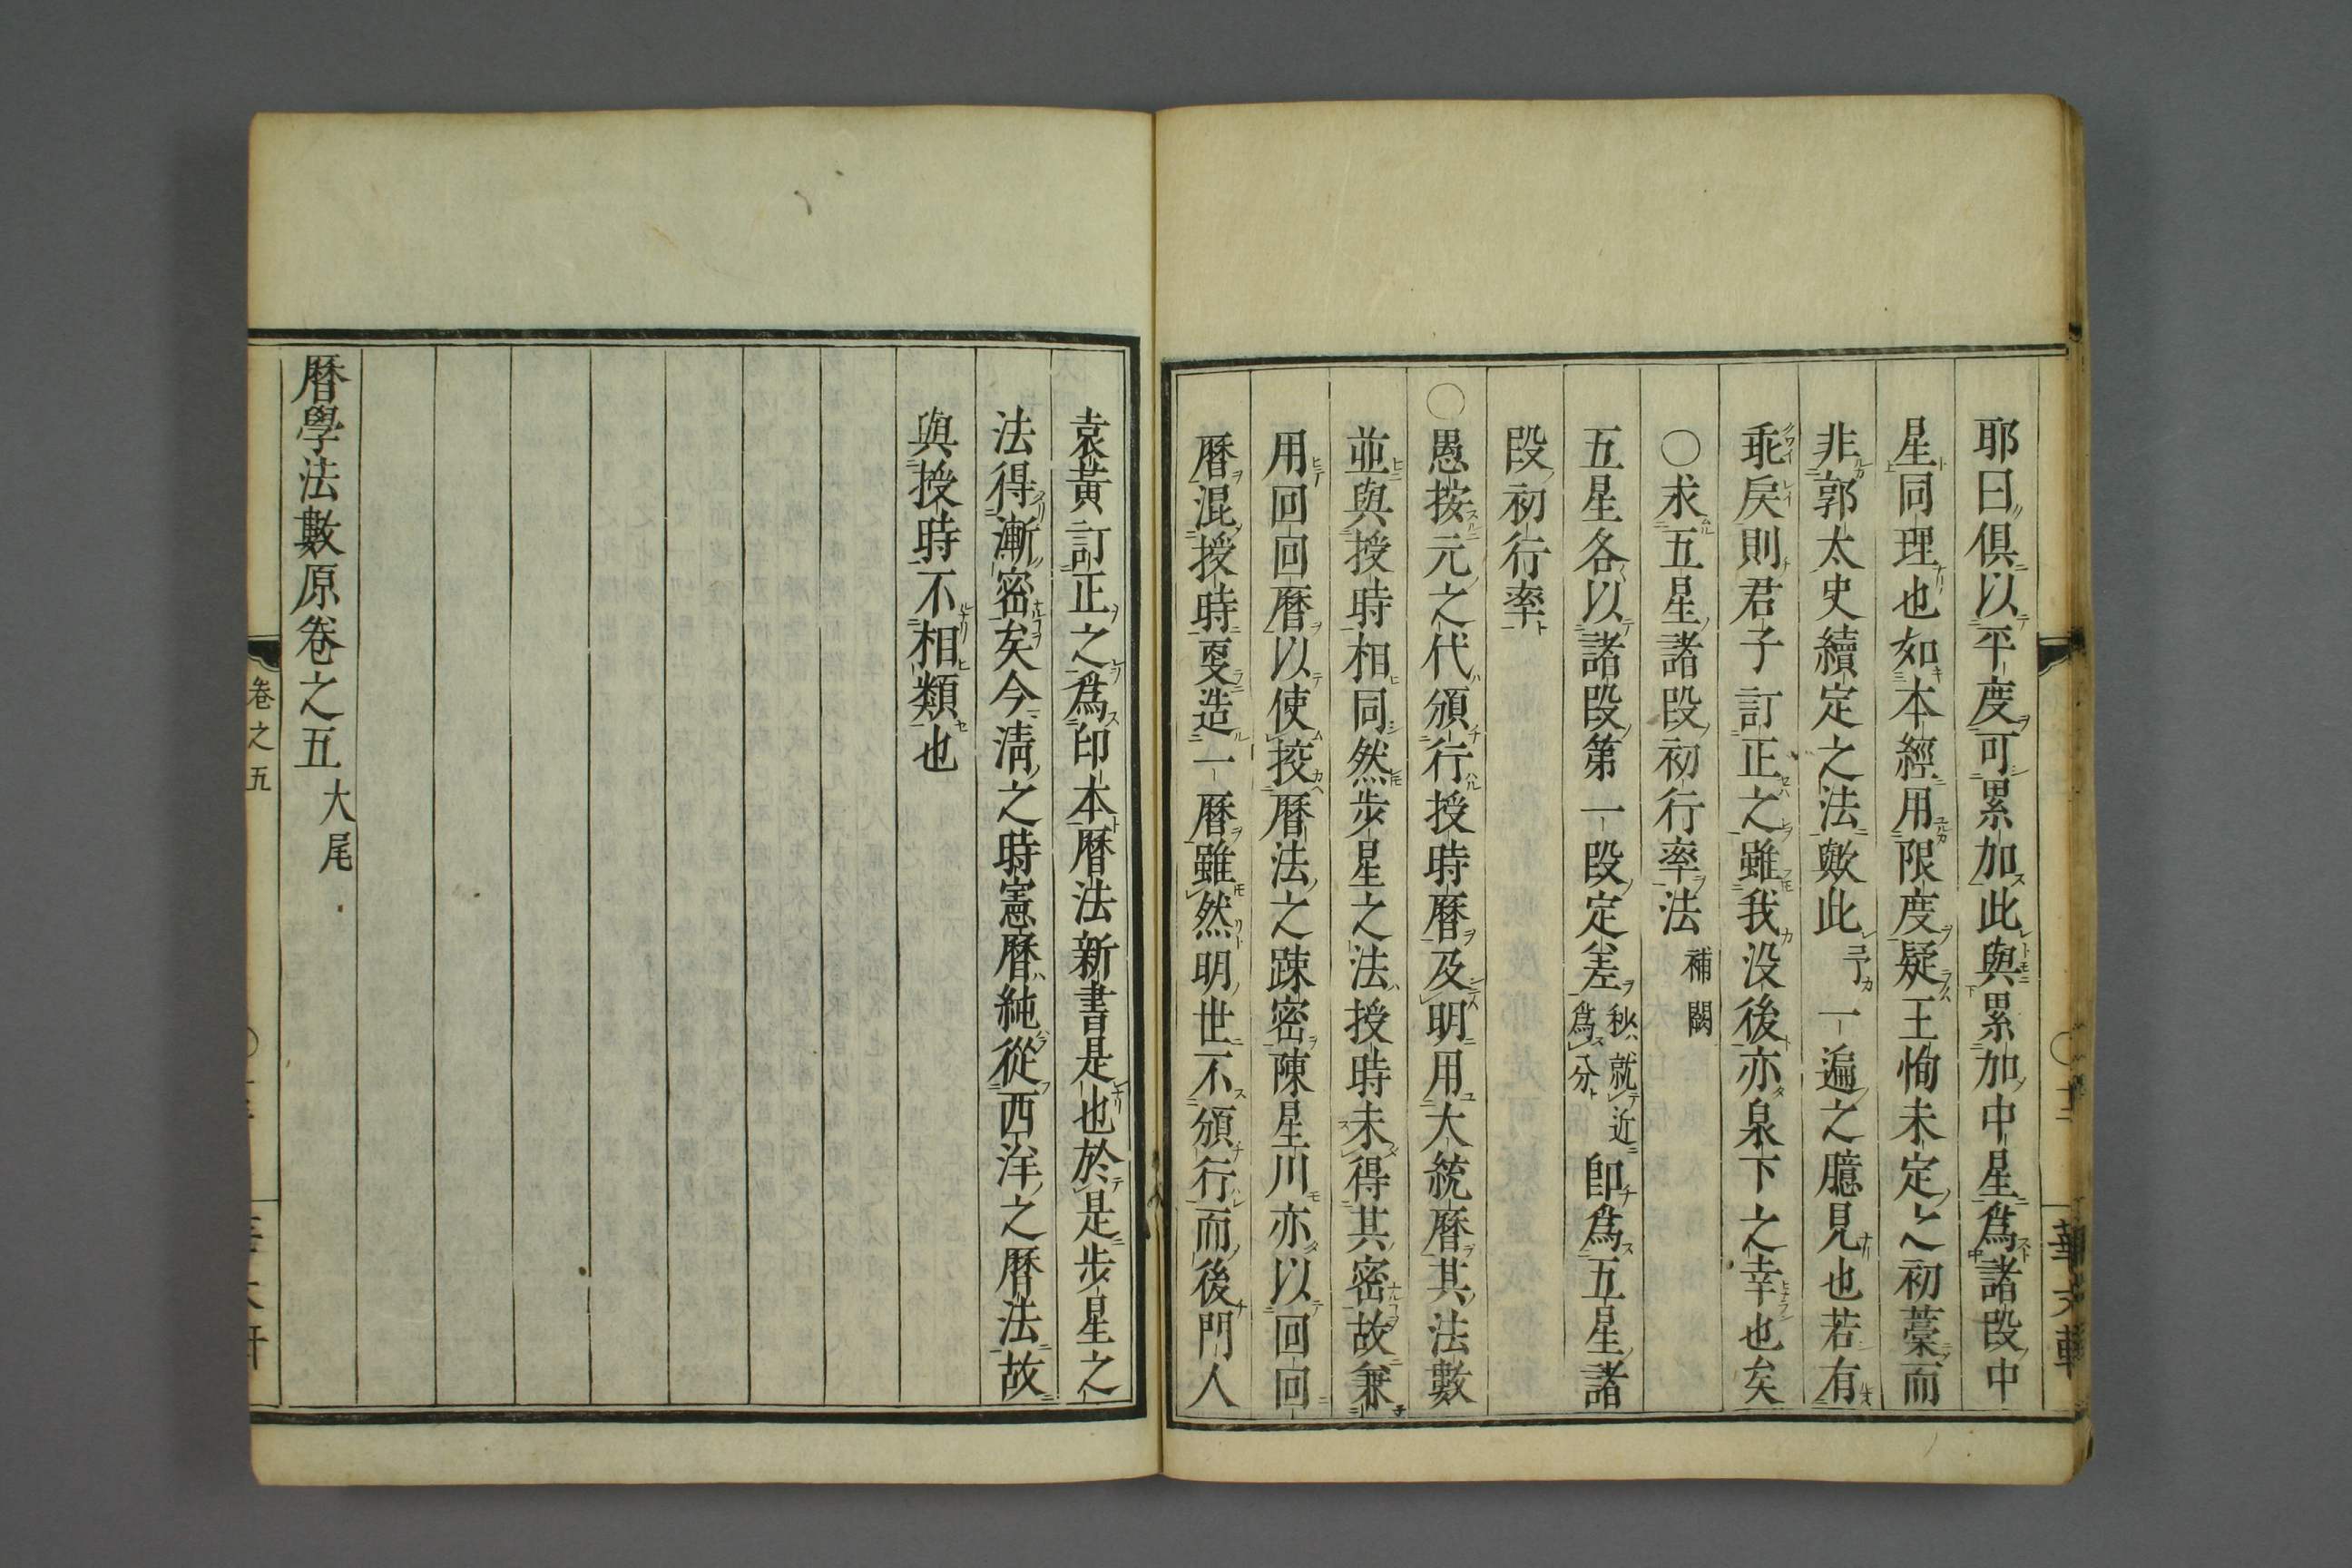 耶曰倶以平度可累加此與累加中星爲諸段中
星同理也如本經用限度疑王恂未定之初藁而
非郭太史續定之法歟此予一遍之臆見也若有
乖戾則君子訂正之雖我没後亦泉下之幸也矣
〇求五星諸段初行率法 補闕
五星各以諸段第一段定差秋就近爲分卽爲五星諸
段初行率
〇愚按元之代頒行授時曆及明用大統曆其法數
並與授時相同然步星之法授時未得其密故兼
用回回曆以使挍曆法之踈密陳星川亦以回回
曆混授時更造一曆雖然明世不頒行而後門人
袁黃訂正之爲印本曆法新書是也於是步星之
法得漸密矣今清之時憲曆純從西洋之曆法故
與授時不相類也
曆學法數原卷之五 大尾
卷之五
華文軒